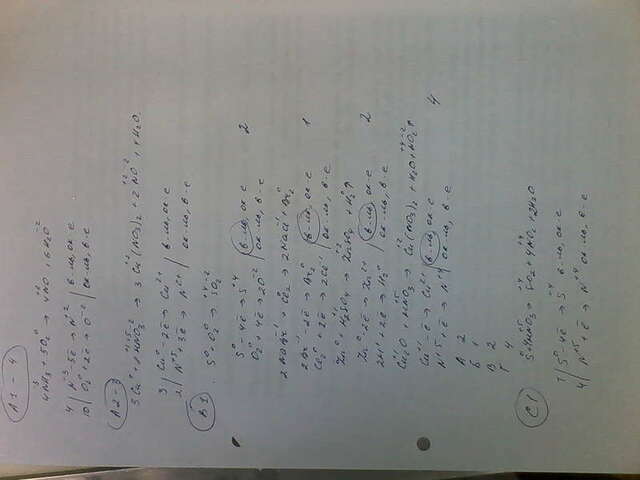 A1-4
4NH3 + 5O2 → 4NO + 6H2O
4 | N-3 - 5ē → N+2 | в-ль, ок-е
10 | O20 + 2ē → O-2 | ок-ль, в-е
A2-3
3Cu0 + HNO3 → 3Cu(NO3)2 + 2NO + 4H2O
3 | Cu0 - 2ē → Cu2+ | в-ль, ок-е
2 | N+5 + 3ē → N2+ | ок-ль, в-е
B1
S0 + O20 → SO2
S0 - 4ē → S+4 | в-ль, ок-е 2
O20 + 4ē → 2O-2 | ок-ль, в-е
2NaBr-1 + Cl20 → 2NaCl-1 + Br20
2Br-1 - 2ē → Br20 | в-ль, ок-е 1
Cl20 + 2ē → 2Cl-1 | ок-ль, в-е
Zn0 + H2SO4 → ZnSO4 + H2↑
Zn0 - 2ē → Zn2+ | в-ль, ок-е 2
2H+ + 2ē → H20 | ок-ль, в-е
Cu2O + HNO3 → Cu(NO3)2 + H2O + NO2↑
Cu+1 - ē → Cu2+ | в-ль, ок-е 4
N+5 + ē → N+4 | ок-ль, в-е
А 2
Б 1
В 2
Г 4
C1
S + 4HNO3 → SO2 + 4NO2 + 2H2O
1 | S0 - 4ē → S+4 в-ль, ок-е
4 | N+5 + ē → N+4 ок-ль, в-е